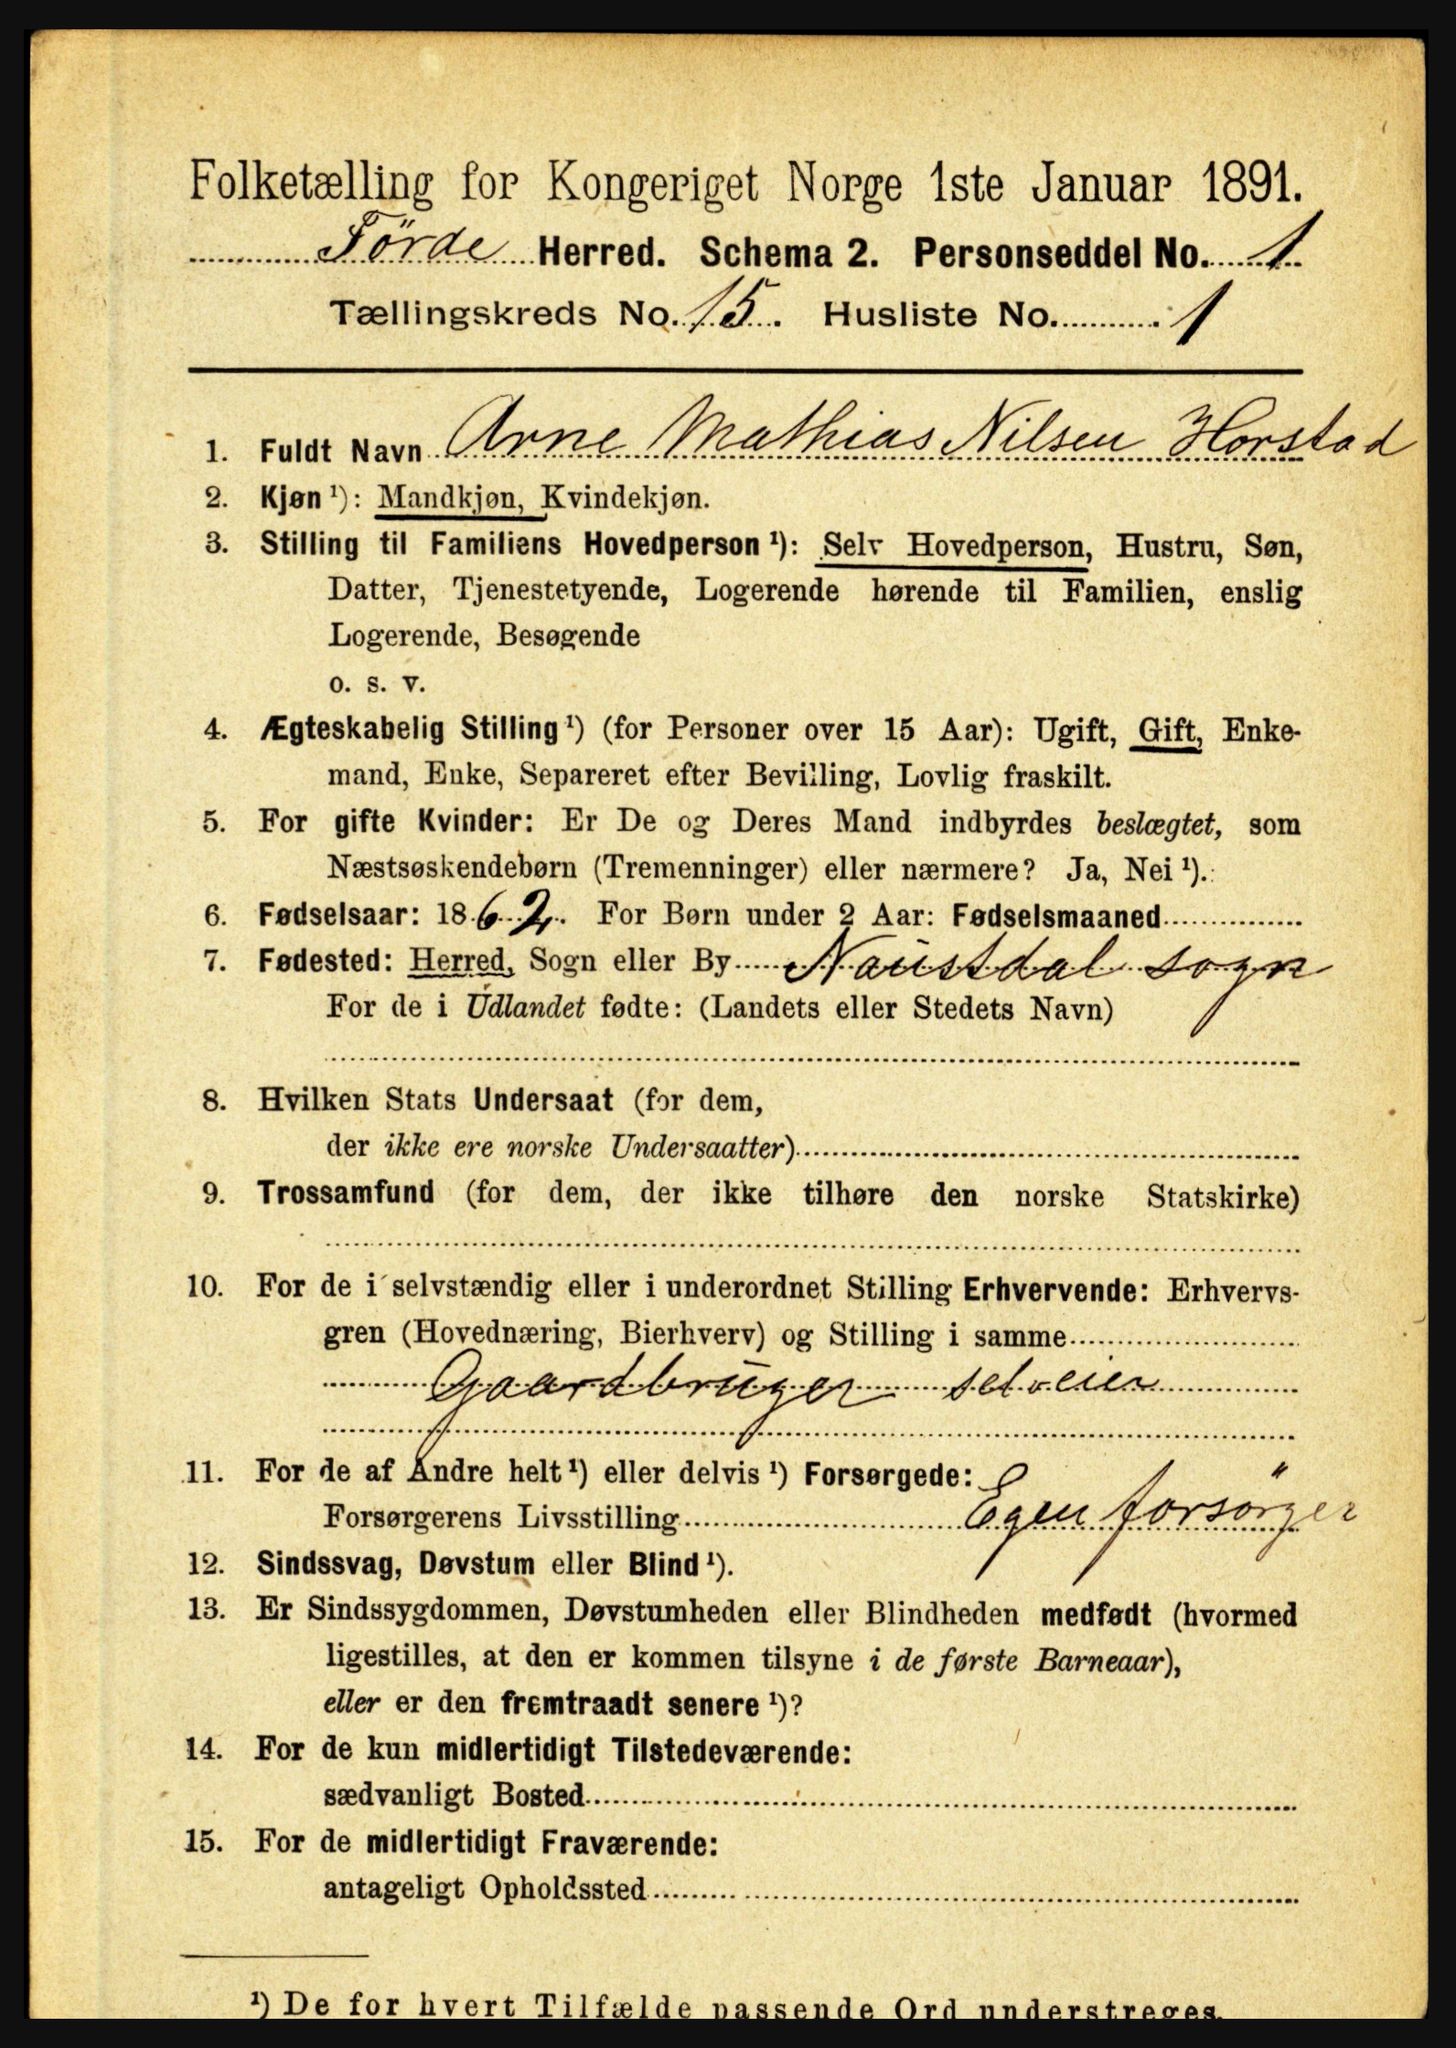 Folketælling for Kongeriget Norge 1ste Januar 1891.
Förde Herred. Schema 2. Personseddel No. 1
Tællingskreds No. 15. Husliste No. 1
1. Fuldt Navn Arne Mathias Nilsen Horstad
2. Kjøn ¹): Mandkjøn, Kvindekjøn.
3. Stilling til Familiens Hovedperson ¹): Selv Hovedperson, Hustru, Søn,
Datter, Tjenestetyende, Logerende hørende til Familien, enslig
Logerende, Besøgende
o. s. v.
4. Ægteskabelig Stilling ¹) (for Personer over 15 Aar): Ugift, Gift, Enke-
mand, Enke, Separeret efter Bevilling, Lovlig fraskilt.
5. For gifte Kvinder: Er De og Deres Mand indbyrdes beslægtet, som
Næstsøskendebørn (Tremenninger) eller nærmere? Ja, Nei ¹).
6. Fødselsaar: 1862. For Børn under 2 Aar: Fødselsmaaned
7. Fødested: Herred, Sogn eller By Naustdal sogn
For de i Udlandet fødte: (Landets eller Stedets Navn)
8. Hvilken Stats Undersaat (for dem,
der ikke ere norske Undersaatter)
9. Trossamfund (for dem, der ikke tilhøre den norske Statskirke)
10. For de i selvstændig eller i underordnet Stilling Erhvervende: Erhvervs-
gren (Hovednæring, Bierhverv) og Stilling i samme
Gaardbruger selveier
11. For de af Andre helt ¹) eller delvis ¹) Forsørgede:
Forsørgerens Livsstilling Egen forsörger
12. Sindssvag, Døvstum eller Blind ¹).
13. Er Sindssygdommen, Døvstumheden eller Blindheden medfødt (hvormed
ligestilles, at den er kommen tilsyne i de første Barneaar),
eller er den fremtraadt senere ¹)?
14. For de kun midlertidigt Tilstedeværende:
sædvanligt Bosted
15. For de midlertidigt Fraværende:
antageligt Opholdssted
¹) De for hvert Tilfælde passende Ord understreges.